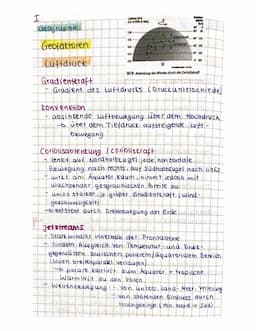 I
Geographie
Geofaktoren
Luftdruck
Gradientkraft
- Gradient des Luftdrucks (Druckunterschiede)
Konvention
- absinkende Luftbewegung über dem Hochdruck
→ über dem Tiefdruck aufsteigende Luft-
bewegung
Coriolisablenkung / Corioliskraft
- lenkt auf Nordhalbkugel jede horizontale
Bewegung nach rechts, auf Südhalbkugel nach links
- wirkt am Äquator kaum, nimmt jedoch mit
wachsender geographischen Breite zu
- umso stärker je größer Gradientkraft (Wind-
geschwindigkeit)
- entsteht durch Drehbewegung der Erde
Jetstreams
- Starkwindfelder innerhalb der Frontalzone
- finden Ausgleich von Temperatur- und Druck-
gegensätzen zwischen polarem/äquatorialem Bereich
→ polare Kaltluft zum Äquator + tropische
Warmluft zu den Polen
- Wellenbewegung: von unters. Land-Meer-Verteilung
von störenden Einfluss durch
Hochgebirge (mit Nord → Süd)